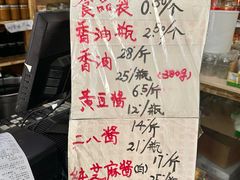 食品袋 0.50/个
香油瓶 2.50/个
香油 28/斤
25/瓶(380g)
黄豆酱 6.5/斤
12/瓶
二八酱 14/斤
21/瓶
纯芝麻酱(白) 17/斤